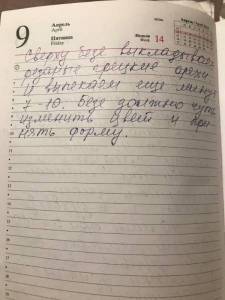 9
Апрель
April
Пятница
Friday
Неделя
Week 14
Сверху безе выкладываем
резаные грецкие орехи
и выпекаем ещё минут
7-10. Безе должно чуть
изменить цвет и
нять форму.